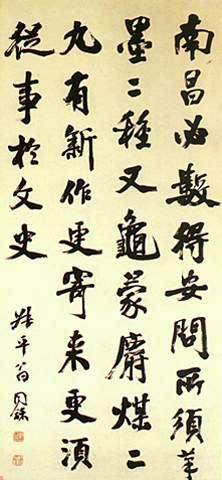 南昌必數得安問所須筆
墨二種又龜蒙麝煤二
丸有新作更寄來更須
從事於文史